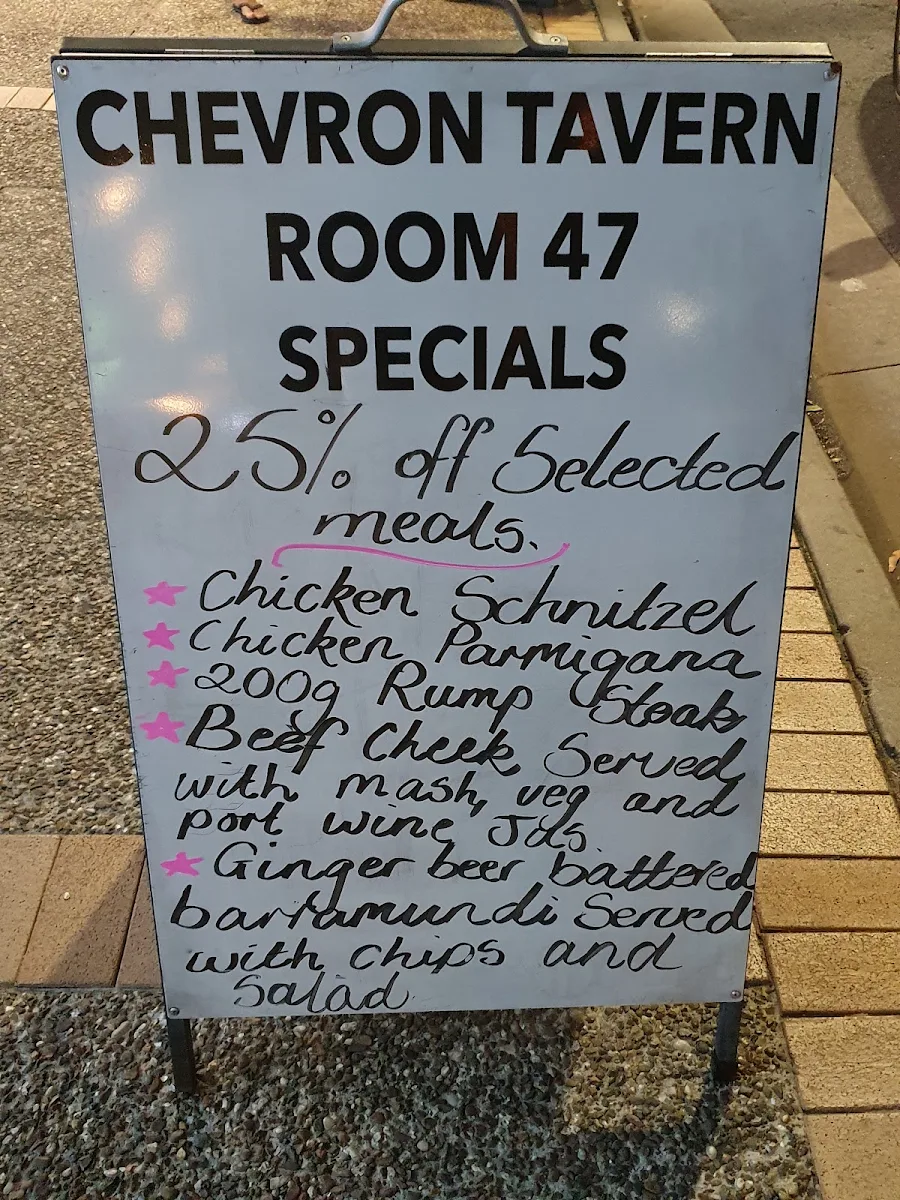 CHEVRON TAVERN
ROOM 47
SPECIALS
25% off Selected
meals.
Chicken Schnitzel
Chicken Parmigana
200g Rump Steak
Beef Cheek Served
with mash, veg and
port wine Jus
Ginger beer battered
barramundi Served
with chips and
Salad